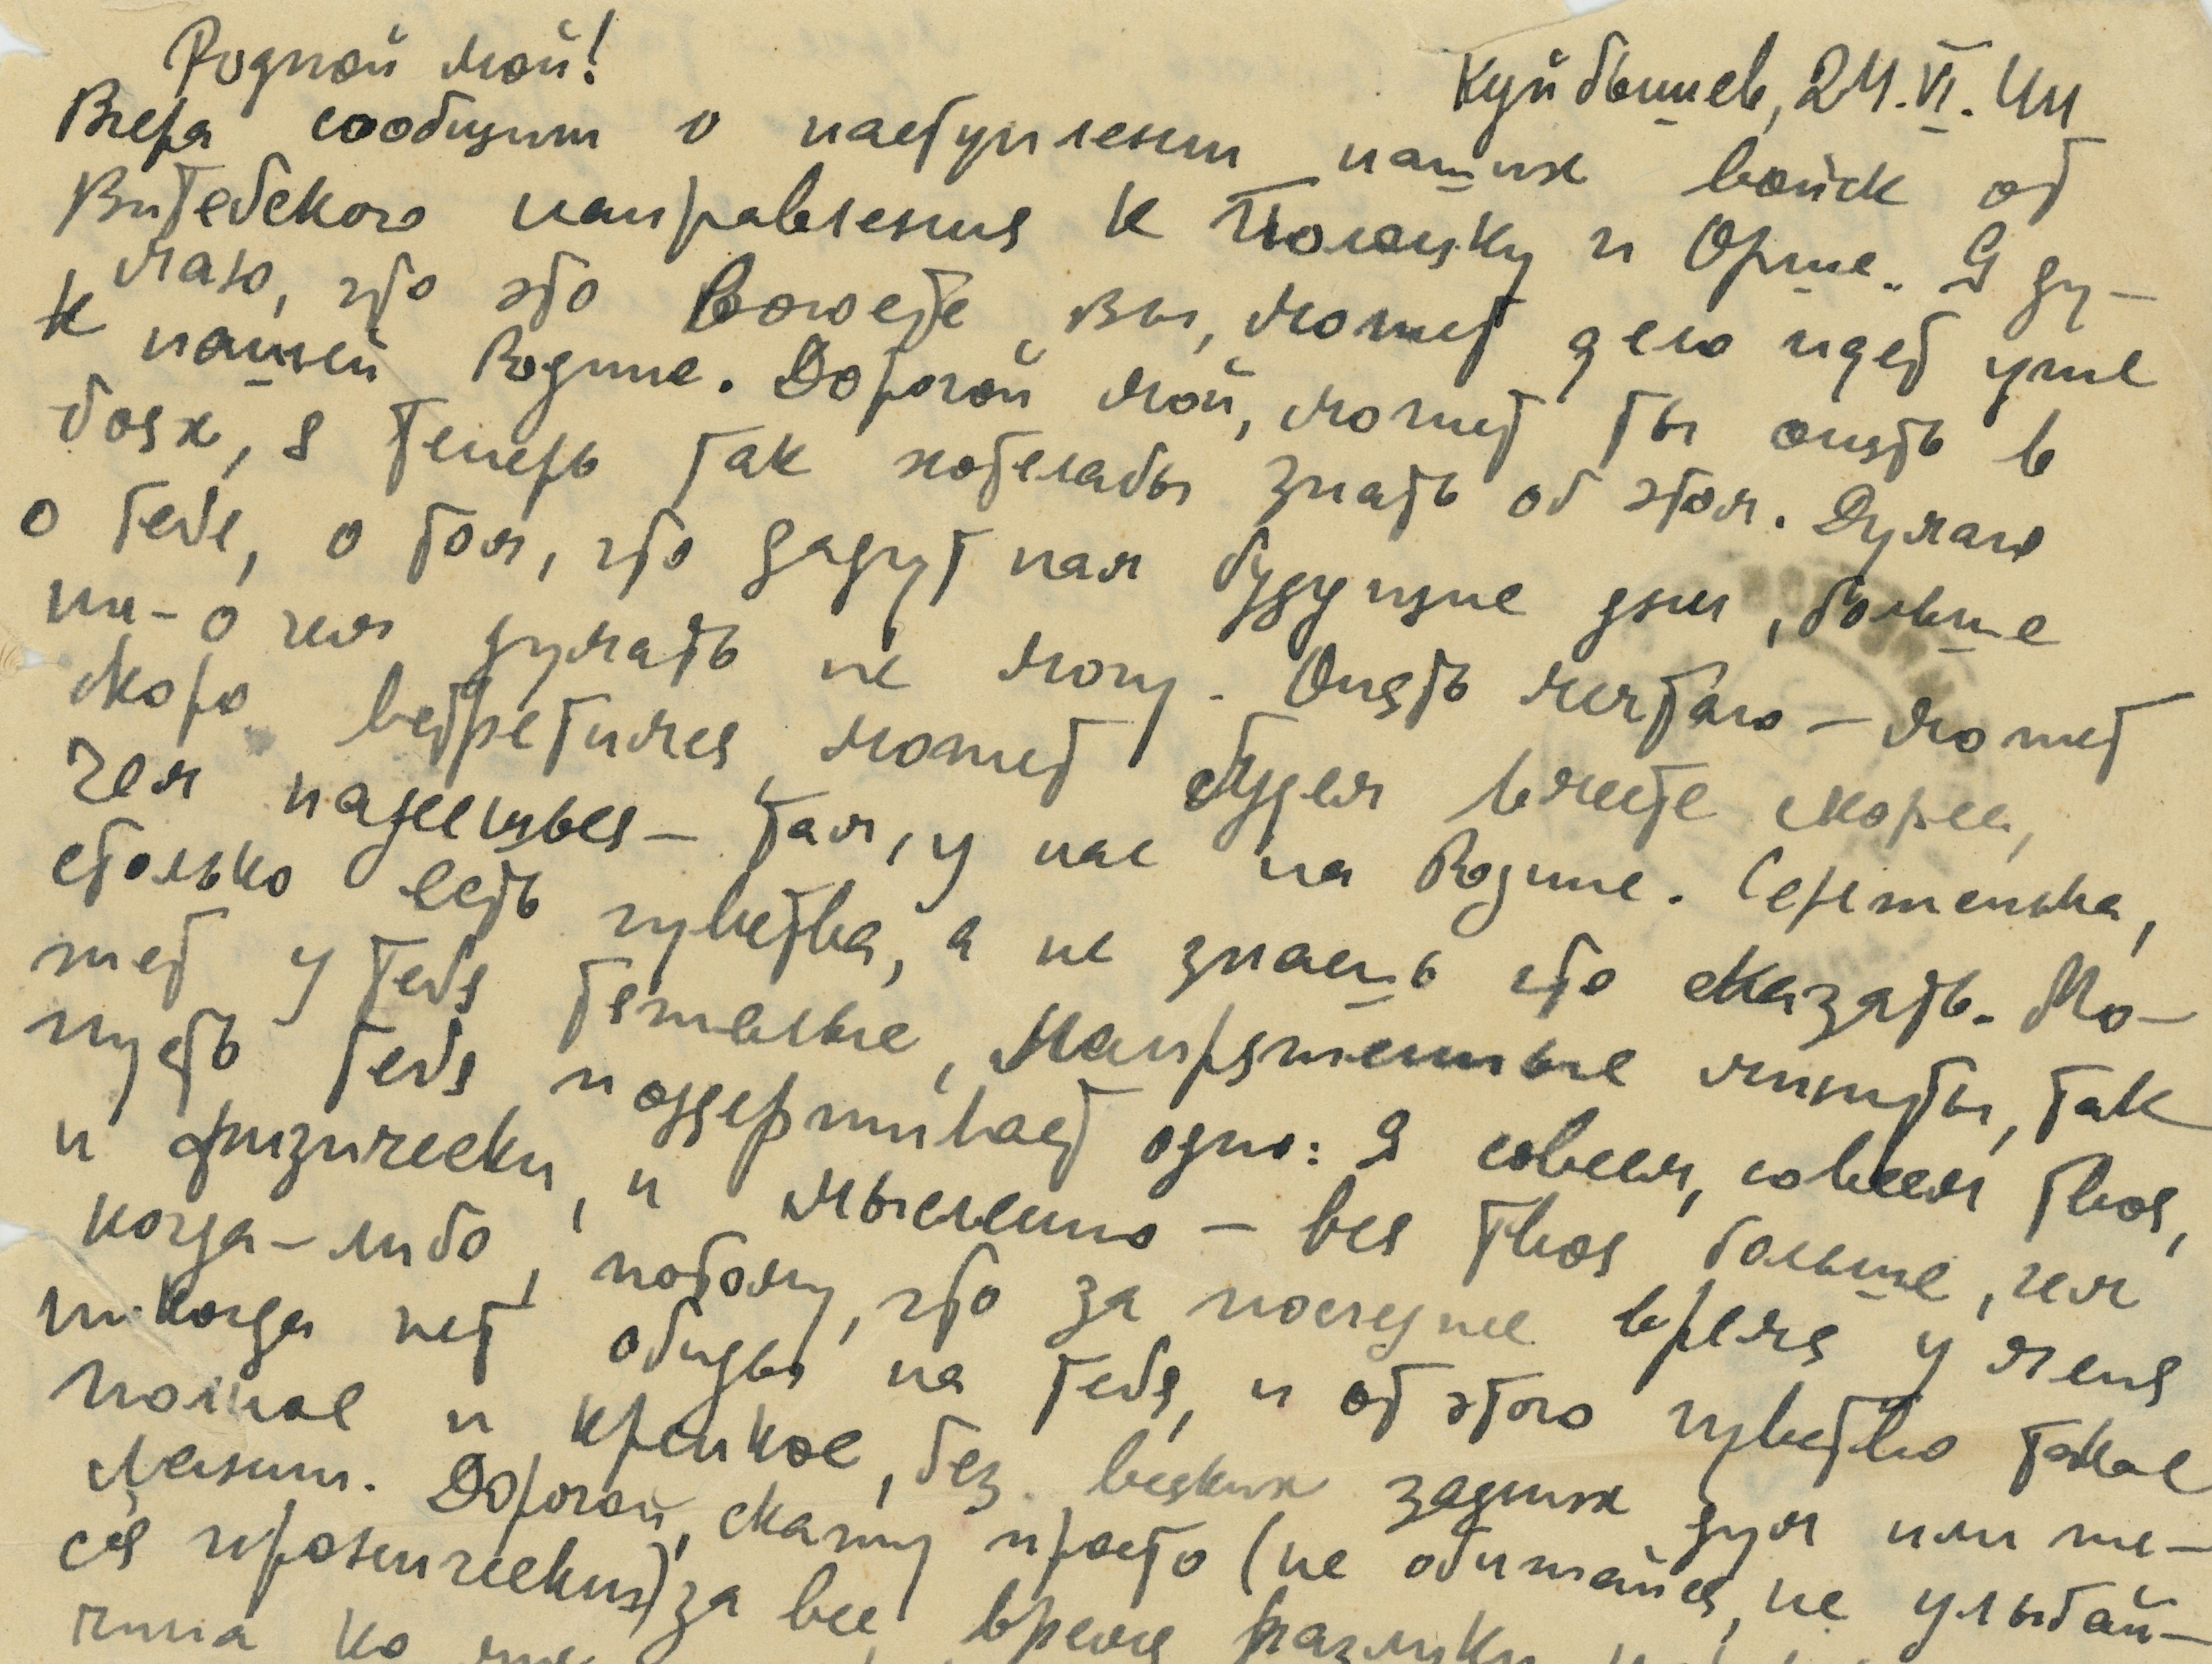 Родной мой!
Куйбышев, 24.VI.44
Вчера сообщили о наступлении наших войск от
Витебского направления к Полоцку и Орше. Я ду-
маю, что это воюете Вы, может дело идет уже
к нашей Родине. Дорогой мой, может ты опять в
боях, я теперь так хотела бы знать об этом. Думаю
о тебе, о том, что дадут нам будущие дни, больше
ни-о чем думать не могу. Опять мечтаю – может
скоро встретимся, может будем вместе скорее,
чем надеешься – там, у нас на Родине. Сереженька,
столько есть чувства, а не знаешь что сказать. Мо-
жет у тебя тяжелые, напряженные минуты, так
пусть тебя поддерживает одно: Я совсем, совсем твоя,
и физически, и мысленно – вся твоя больше, чем
когда-либо, потому, что за последнее время у меня
никогда нет обиды на тебя, и от этого чувство такое
полное и крепкое, без всяких задних дум или же-
ланий. Дорогой, скажу просто (не обижайся, не улыбай-
ся иронически) за все время разлуки
ко мне